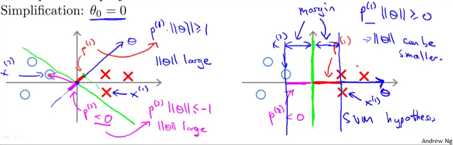 Simplification: θ₀ = 0
p⁽¹⁾
p⁽¹⁾·||θ|| ≥ 1
||θ|| large
θ
x⁽²⁾
x⁽¹⁾
p⁽²⁾
< 0
p⁽²⁾||θ|| ≤ -1
||θ|| large
margin
p⁽¹⁾||θ|| ≥ 0
||θ|| can be
smaller.
x⁽²⁾
θ
x⁽¹⁾
p⁽²⁾ < 0
SVM hypothesis
Andrew Ng